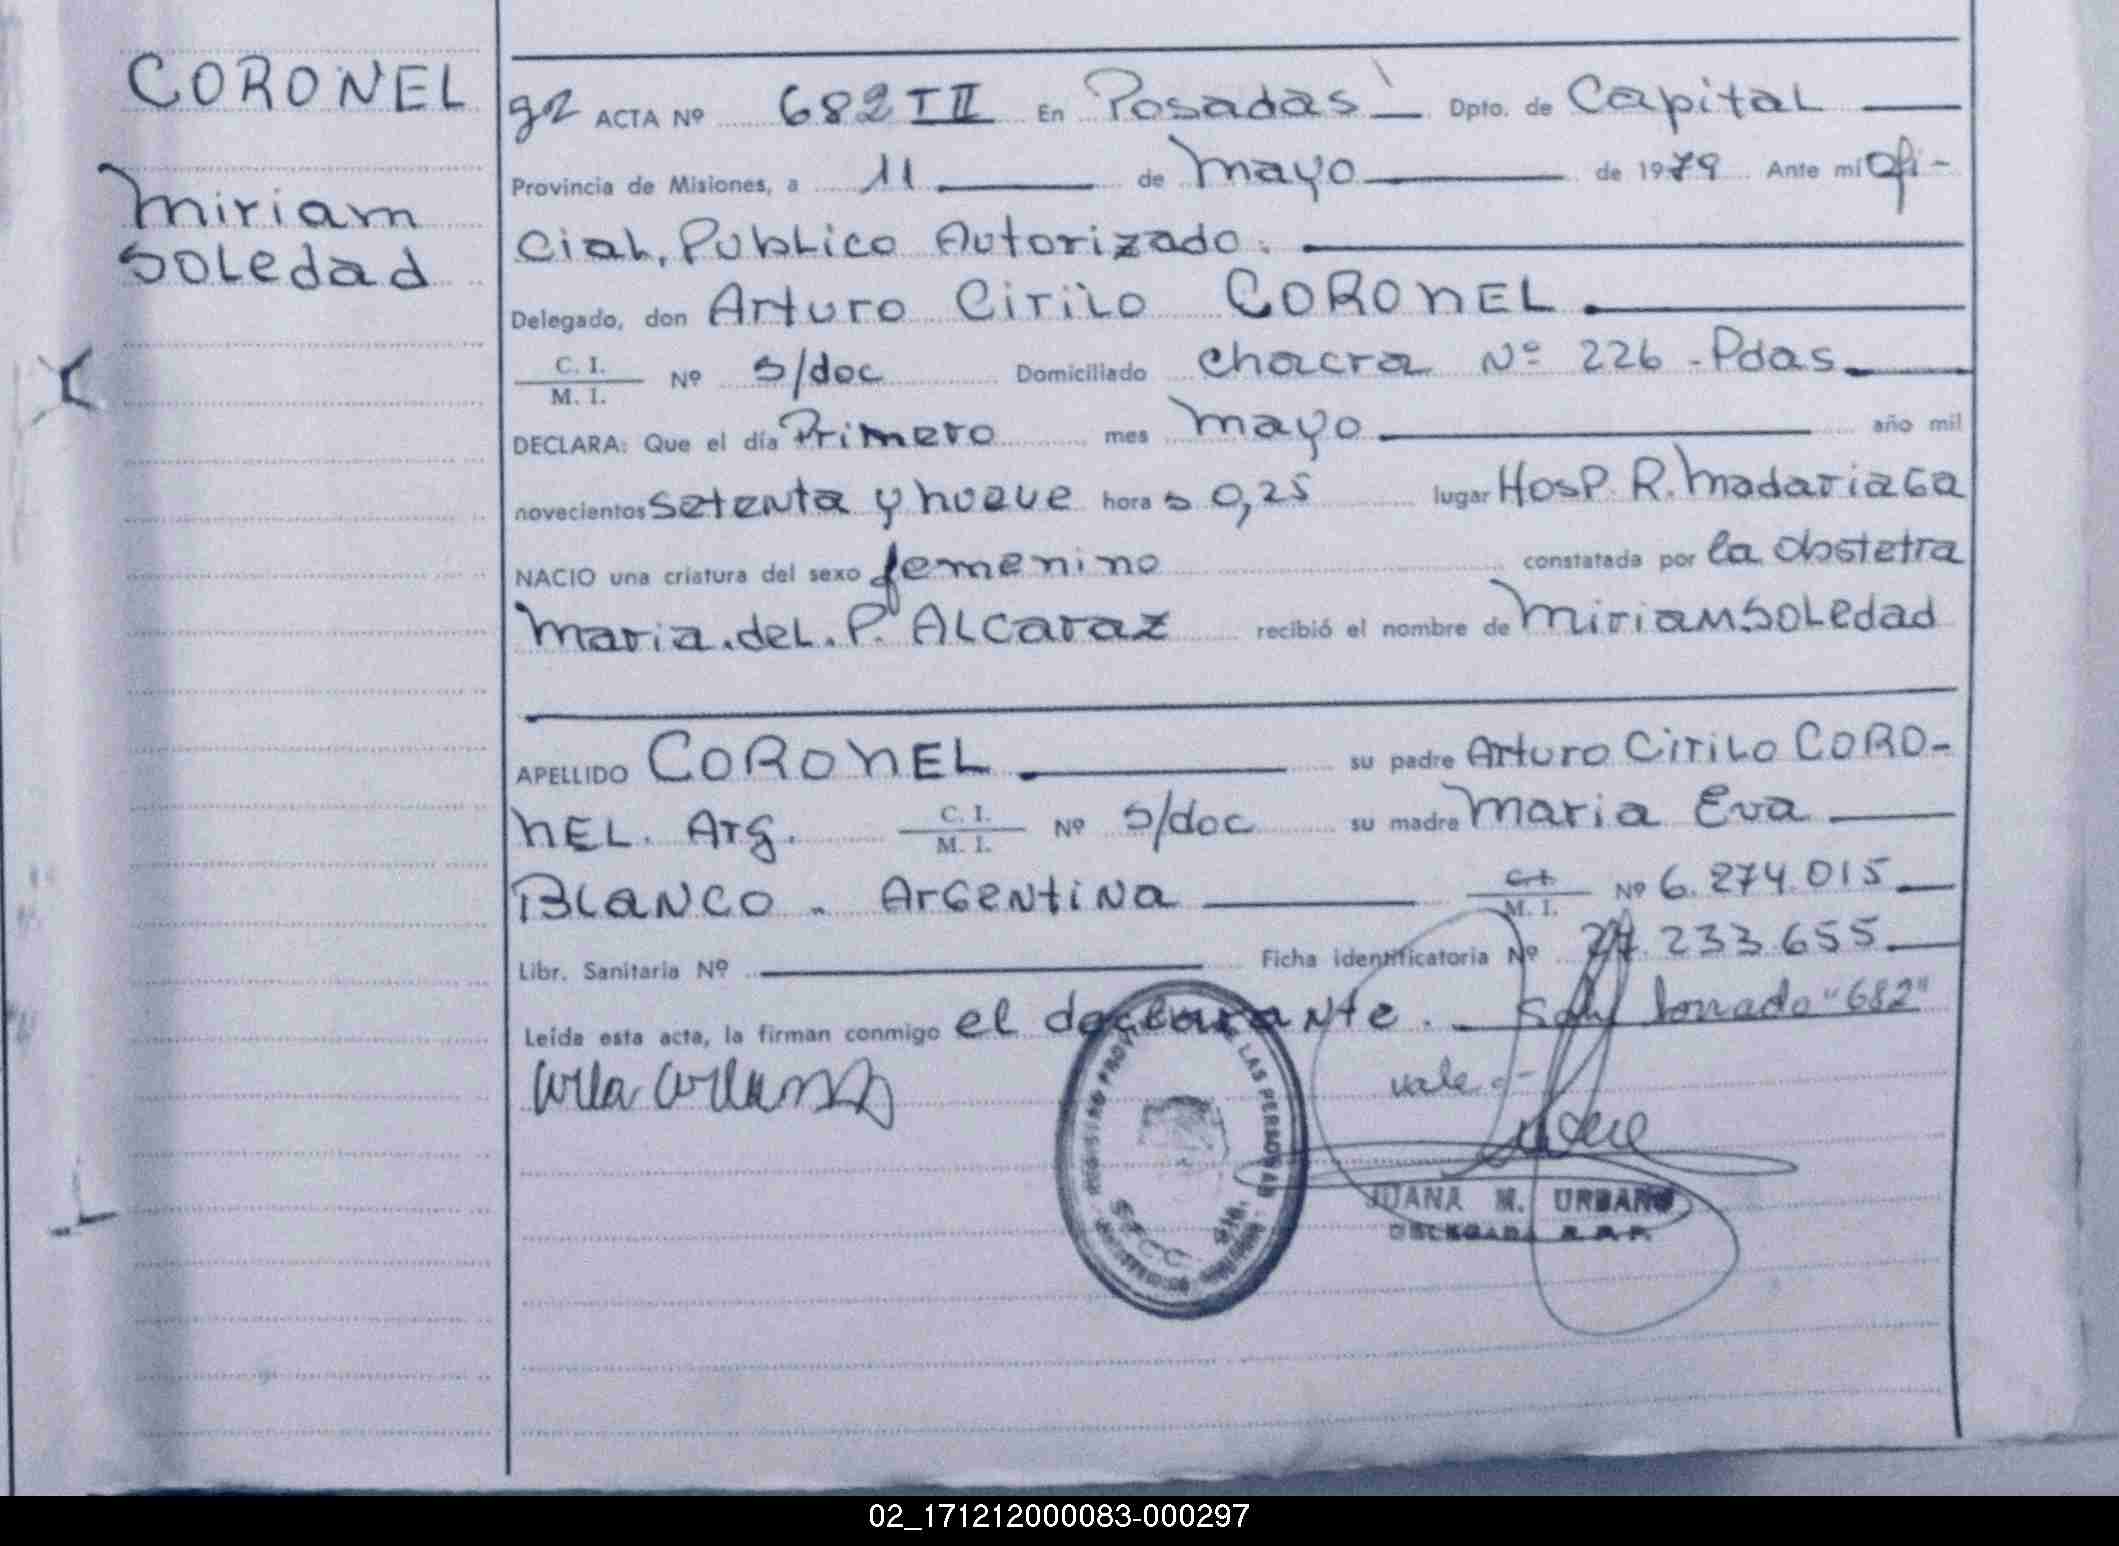 CORONEL
Miriam
Soledad
92 ACTA Nº 682 T II En Posadas Dpto. de Capital
Provincia de Misiones, a 11 de Mayo de 1979 Ante mi Ofi-
cial, Publico Autorizado.
Delegado, don Arturo Cirilo CORONEL
C. I.
M. I.
Nº s/doc Domiciliado chacra Nº 226 - Pdas
DECLARA: Que el día Primero mes Mayo año mil
novecientos setenta y nueve hora s 0,25 lugar Hosp. R. Madariaga
NACIO una criatura del sexo femenino constatada por la Obstetra
Maria. del. P. Alcaraz recibió el nombre de Miriam Soledad
APELLIDO CORONEL su padre Arturo Cirilo CORO-
NEL. Arg. C. I.
M. I.
Nº s/doc su madre Maria Eva
BLANCO - Argentina C. I.
M. I.
Nº 6.274.015
Libr. Sanitaria Nº Ficha identificatoria Nº 27.233.655
Leída esta acta, la firman conmigo el declarante. borrado "682"
vale.-
REGISTRO PROVINCIAL DE LAS PERSONAS
SECC.
JUANA M. URBANO
DELEGADA R.P.P.
02_171212000083-000297